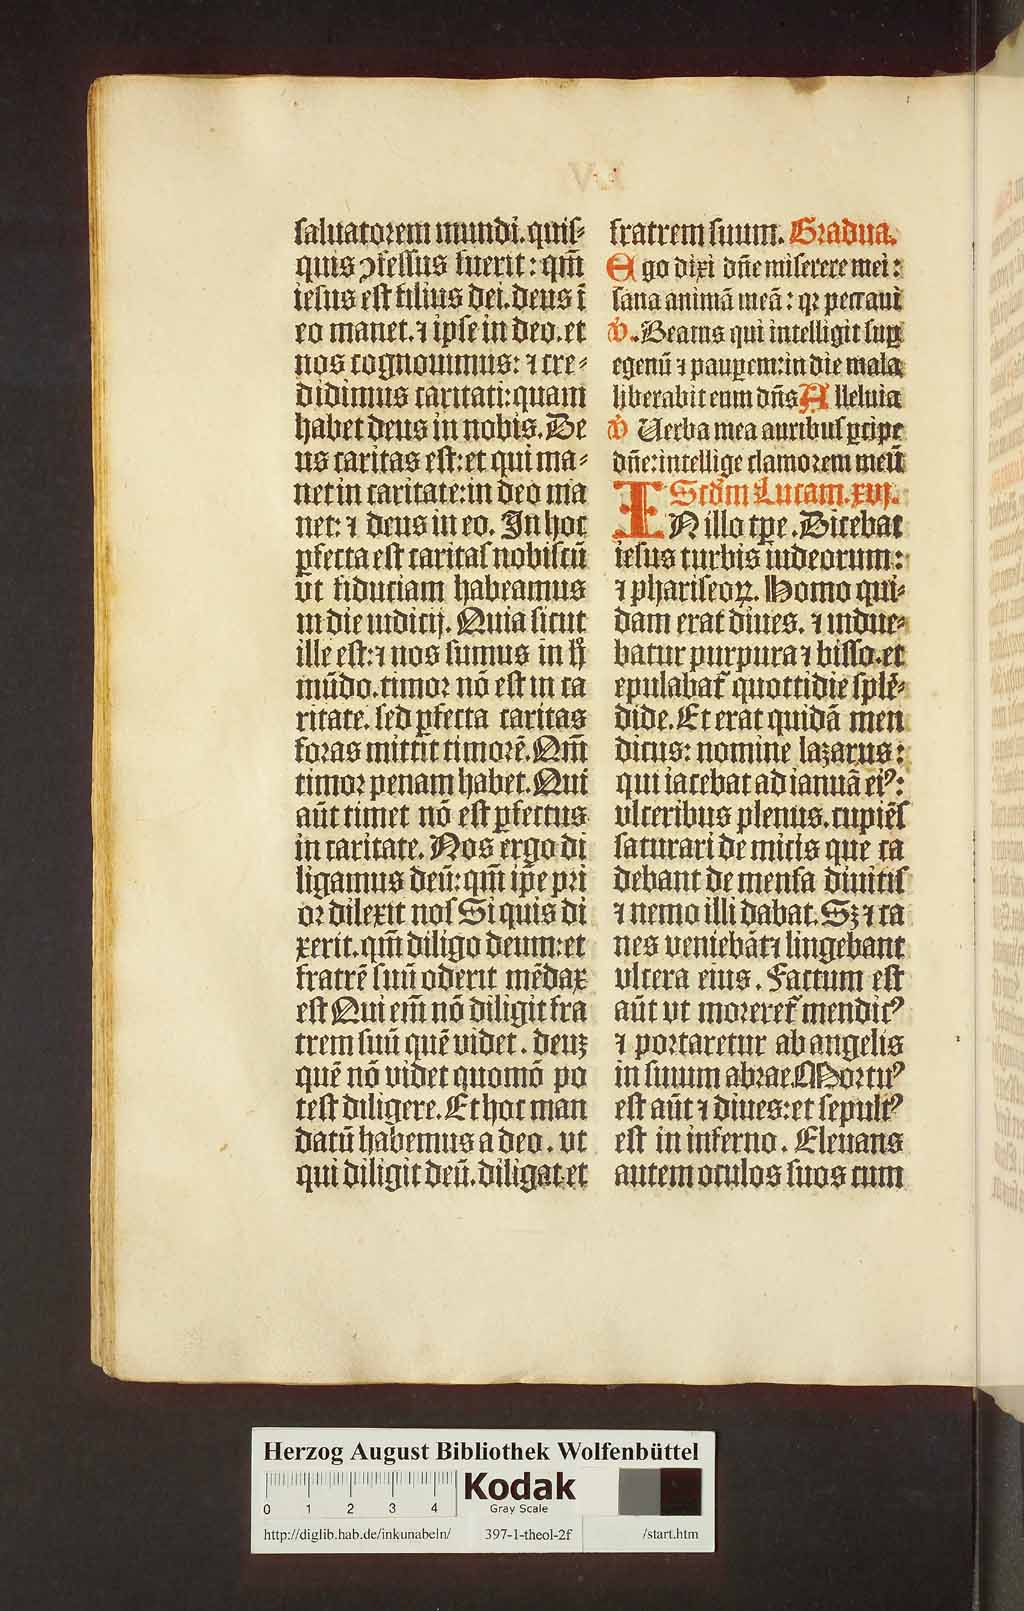 saluatorem mundi. quis-
quis ꝯfessus fuerit: qm̄
iesus est filius dei. deus ī
eo manet. ⁊ ipse in deo. et
nos cognouimus: ⁊ cre-
didimus caritati: quam
habet deus in nobis. De
us caritas est: et qui ma-
net in caritate: in deo ma
net: ⁊ deus in eo. In hoc
ꝑfecta est caritas nobiscū
vt fiduciam habeamus
in die iudicij. Quia sicut
ille est: ⁊ nos sumus in hͦ
mūdo. timor nō est in ca
ritate. sed ꝑfecta caritas
foras mittit timorē. Qm̄
timor penam habet. Qui
aūt timet nō est ꝑfectus
in caritate. Nos ergo di
ligamus deū: qm̄ ip̄e pri
or dilexit nos Si quis di
xerit. qm̄ diligo deum: et
fratrē suū oderit mēdax
est Qui em̄ nō diligit fra
trem suū quē videt. deuꝫ
quē nō videt quomō po
test diligere. Et hoc man
datū habemus a deo. vt
qui diligit deū. diligat: et
fratrem suum. Gradua.
Ego dixi dn̄e miserere mei:
sana animā meā: qꝛ peccaui
℣. Beatus qui intelligit suꝑ
egenū ⁊ pauꝑem: in die mala
liberabit eum dn̄s Alleluia
℣ Uerba mea auribus ꝑcipe
dn̄e: intellige clamorem meū
Scdm̄ Lucam. xvj.
IN illo tꝑe. Dicebat
iesus turbis iudeorum:
⁊ phariseoꝝ. Homo qui-
dam erat diues. ⁊ indue-
batur purpura ⁊ bisso. et
epulabat᷑ quottidie splē-
dide. Et erat quidā men
dicus: nomine lazarus:
qui iacebat ad ianuā eiꝰ:
vlceribus plenus. cupiēs
saturari de micis que ca
debant de mensa diuitis
⁊ nemo illi dabat. Sꝫ ⁊ ca
nes veniebāt ⁊ lingebant
vlcera eius. Factum est
aūt vt moreret᷑ mendicꝰ
⁊ portaretur ab angelis
in sinum abrae. Mortuꝰ
est aūt ⁊ diues: et sepultꝰ
est in inferno. Eleuans
autem oculos suos cum
Herzog August Bibliothek Wolfenbüttel
0 1 2 3 4
Kodak
Gray Scale
http://diglib.hab.de/inkunabeln/ 397-1-theol-2f /start.htm